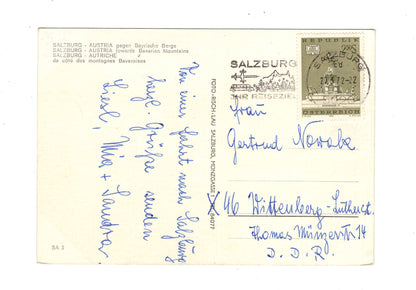 SALZBURG - AUSTRIA gegen Bayrische Berge
SALZBURG - AUSTRIA towards Bavarian Mountains
SALZBURG - AUTRICHE
de côté des montagnes Bavaroises
Von einer Fahrt nach Salzburg
herzl. Grüße senden
Liesl, Mia + Sandra.
SA 2
FOTO-RISCH-LAU SALZBURG, MÜNZGASSE
SALZBURG
IHR REISEZIEL
SALZBURG
REPUBLIK
ÖSTERREICH
Frau
Gertrud Nowak
X 46 Wittenberg-Lutherst.
Thomas Münzerstr 14
D. D. R.